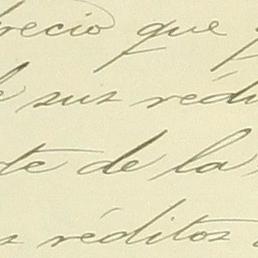 precio que
de sus rédi
te de la
s réditos